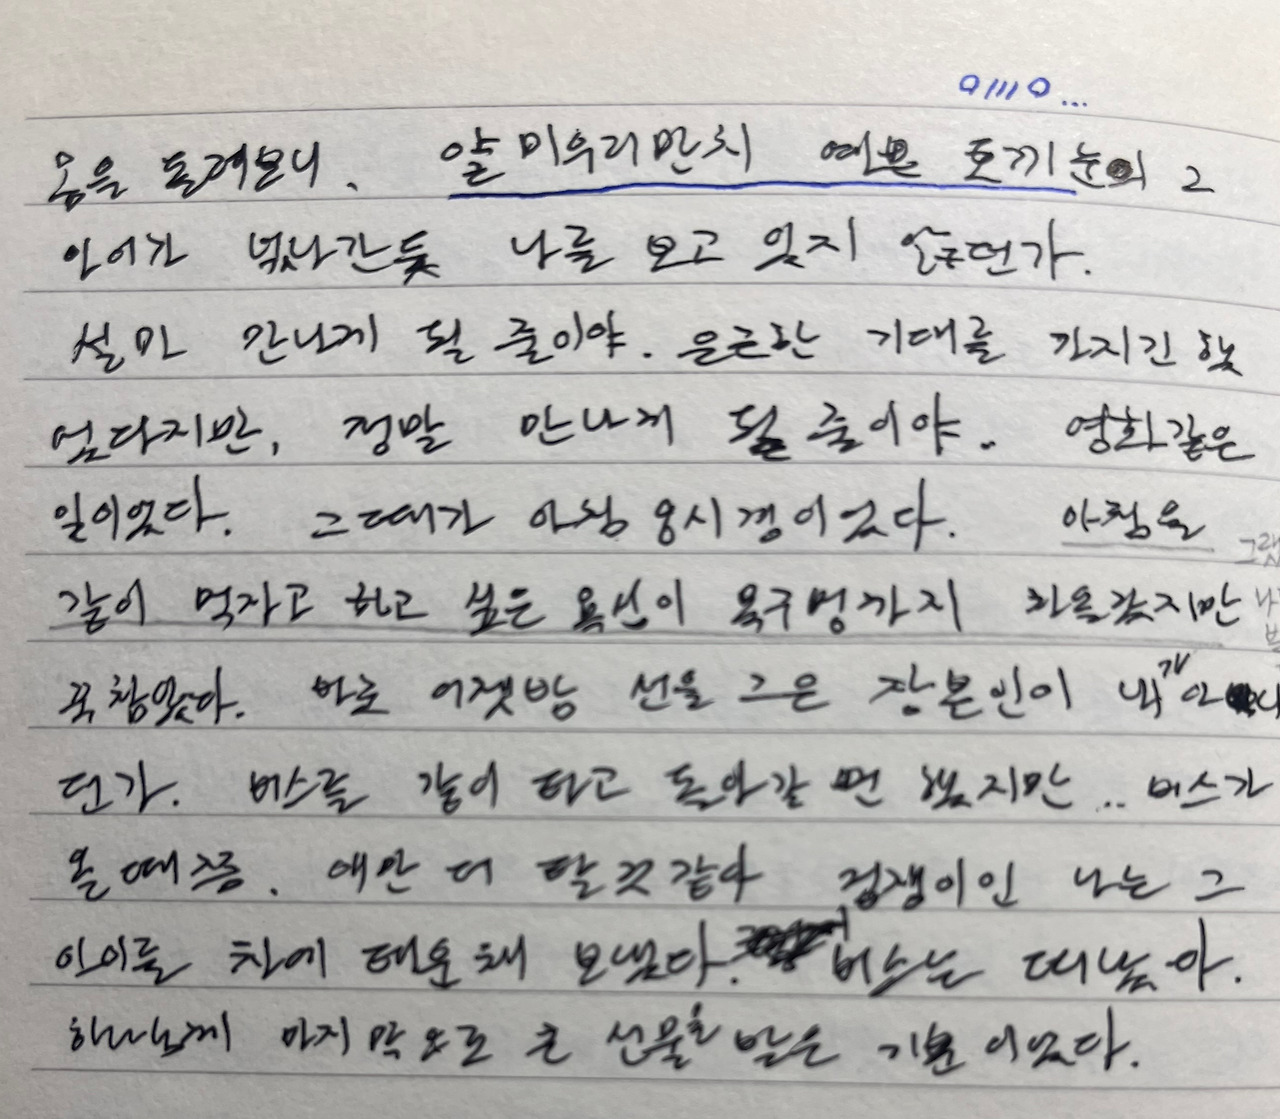 이///이...
몸을 돌려보니. 얄미우리만치 예쁜 토끼눈의 그
아이가 넋나간듯 나를 보고 있지 않던가.
설마 만나게 될 줄이야. 은근한 기대를 가지긴 했
었다지만, 정말 만나게 될 줄이야. 영화같은
일이었다. 그때가 아침 8시경이었다. 아침을
같이 먹자고 하고 싶은 욕심이 목구멍까지 차올랐지만
꾹 참았다. 바로 어젯밤 선을 그은 장본인이 내가 아니
던가. 버스를 같이 타고 돌아갈 뻔 했지만.. 버스가
올 때쯤. 애만 더 탈 것 같아 겁쟁이인 나는 그
아이를 차에 태운채 보냈다. 버스는 떠났다.
하나님께 마지막으로 큰 선물을 받은 기분이었다.